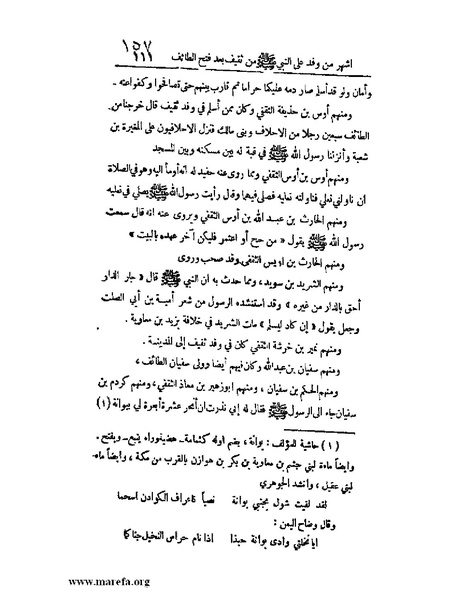 ١٥٧
١١١
اشهر من وفد على النبي ﷺ من ثقيف بعد فتح الطائف
وأمان ولو قد أسلم صار دمه عليكما حراما ثم قارب بينهم حتى تصالحوا وكفوا عنه ـ
ومنهم أوس بن حذيفة الثقفي وكان ممن أسلم في وفد ثقيف قال خرجنا من
الطائف سبعين رجلا من الاحلاف وبنى مالك فنزل الاحلافيون على المغيرة بن
شعبة وأنزلنا رسول الله ﷺ في قبة له بين مسكنه وبين المسجد
ومنهم أوس بن أوس الثقفي ومما روى عنه حفيد له أنه أومأ اليه وهو في الصلاة
أن ناولني نعلي فناولته نعليه فصلى فيهما وقال رأيت رسول الله ﷺ يصلي في نعليه
ومنهم الحارث بن عبد الله بن أوس الثقفي ويروى عنه انه قال سمعت
رسول الله ﷺ يقول « من حج أو اعتمر فليكن آخر عهده بالبيت »
ومنهم الحارث بن اويس الثقفي وقد صحب وروى
ومنهم الشريد بن سويد ، ومما حدث به ان النبي ﷺ قال « جار الدار
أحق بالدار من غيره » وقد استنشده الرسول من شعر أمية بن أبي الصلت
وجعل يقول « إن كاد ليسلم » مات الشريد في خلافة يزيد بن معاوية .
ومنهم نمير بن خرشة الثقفي كان في وفد ثقيف إلى المدينة .
ومنهم سفيان بن عبد الله وكان فيهم أيضا وولى سفيان الطائف ،
ومنهم الحكم بن سفيان ، ومنهم ابوزهير بن معاذ الثقفي ، ومنهم كردم بن
سفيان جاء الى الرسول ﷺ فقال له إني نذرت ان أنحر عشرة أبعرة لي ببوانة (١)
(١) حاشية للمؤلف : بوانة ، بضم اوله كثمامة ـ هضبة وراء ينبع ـ وبفتح .
وايضاً ماءة لبني جشم بن معاوية بن بكر بن هوازن بالقرب من مكة ، وايضاً ماء
لبني عقيل ، وانشد الجوهري
لقد لقيت شول بجنبي بوانة نصياً كأعراف الكوادن اسحما
وقال وضاح اليمن :
ايا نخلتي وادي بوانة حبذا اذا نام حراس النخيل جناكما
www.marefa.org